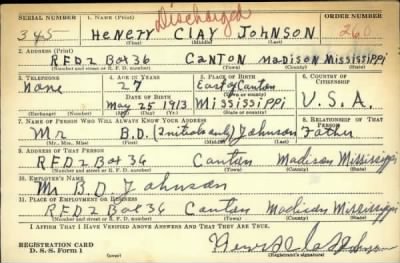 SERIAL NUMBER 1. NAME (Print) Discharged ORDER NUMBER
345 HENERY CLAY JOHNSON 260
(First) (Middle) (Last)
2. ADDRESS (Print)
RFD 2 Box 36 CANTON MADISON MISSISSIPPI
(Number and street or R. F. D. number) (Town) (County) (State)
3. TELEPHONE 4. AGE IN YEARS 5. PLACE OF BIRTH 6. COUNTRY OF CITIZENSHIP
None 27 East of Canton
DATE OF BIRTH (Town or county)
May 25 1913 Mississippi U.S.A.
(Exchange) (Number) (Mo.) (Day) (Yr.) (State or country)
7. NAME OF PERSON WHO WILL ALWAYS KNOW YOUR ADDRESS 8. RELATIONSHIP OF THAT PERSON
Mr B.D. (Initials only) Johnson Father
(Mr., Mrs., Miss) (First) (Middle) (Last)
9. ADDRESS OF THAT PERSON
RFD 2 Box 36 Canton Madison Mississippi
(Number and street or R. F. D. number) (Town) (County) (State)
10. EMPLOYER'S NAME
Mr B.D. Johnson
11. PLACE OF EMPLOYMENT OR BUSINESS
RFD 2 Box 36 Canton Madison Mississippi
(Number and street or R. F. D. number) (Town) (County) (State)
I AFFIRM THAT I HAVE VERIFIED ABOVE ANSWERS AND THAT THEY ARE TRUE.
REGISTRATION CARD
D. S. S. Form 1 (over) Johnson
(Registrant's signature)